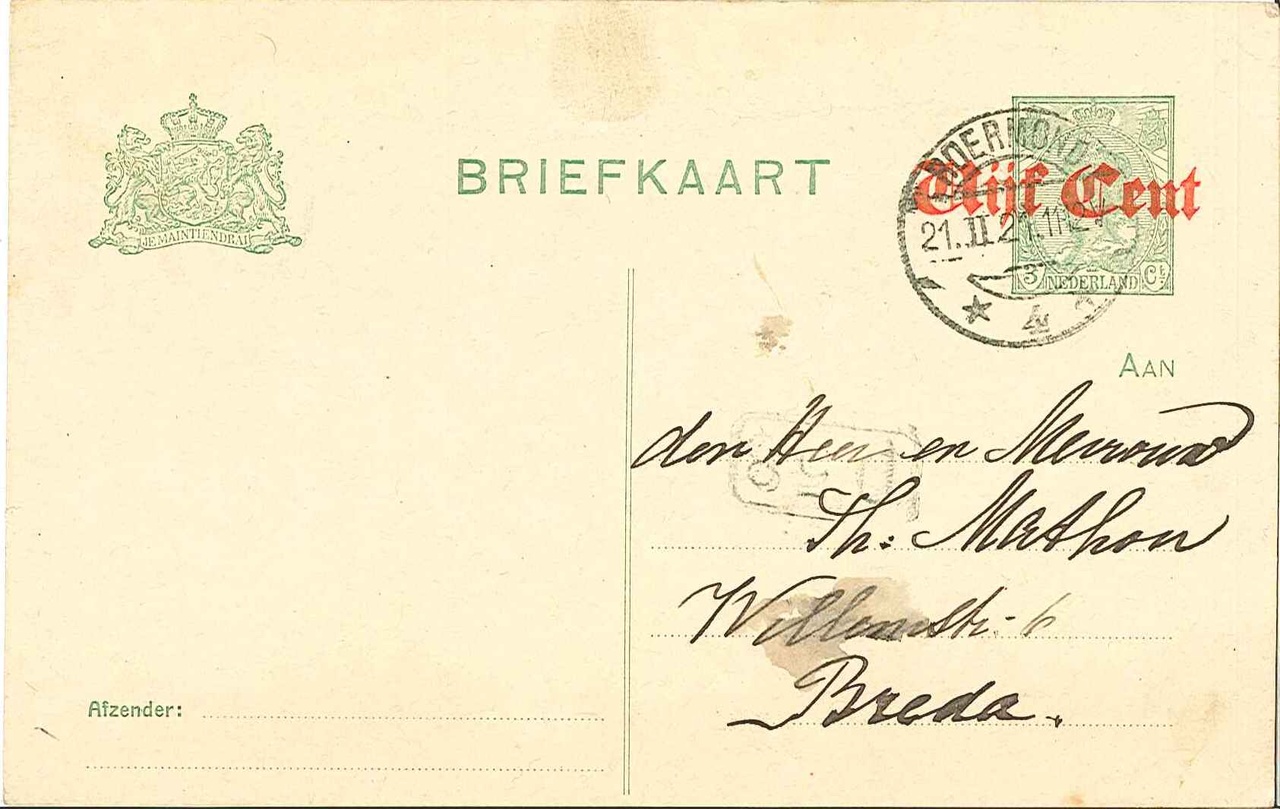 JE MAINTIENDRAI
BRIEFKAART
ROERMOND
21.II.21.11-12V
4
Vijf Cent
3 NEDERLAND Ct
AAN
den Heer en Mevrouw
Th: Mathon
Willemstr. 6
Breda.
Afzender: